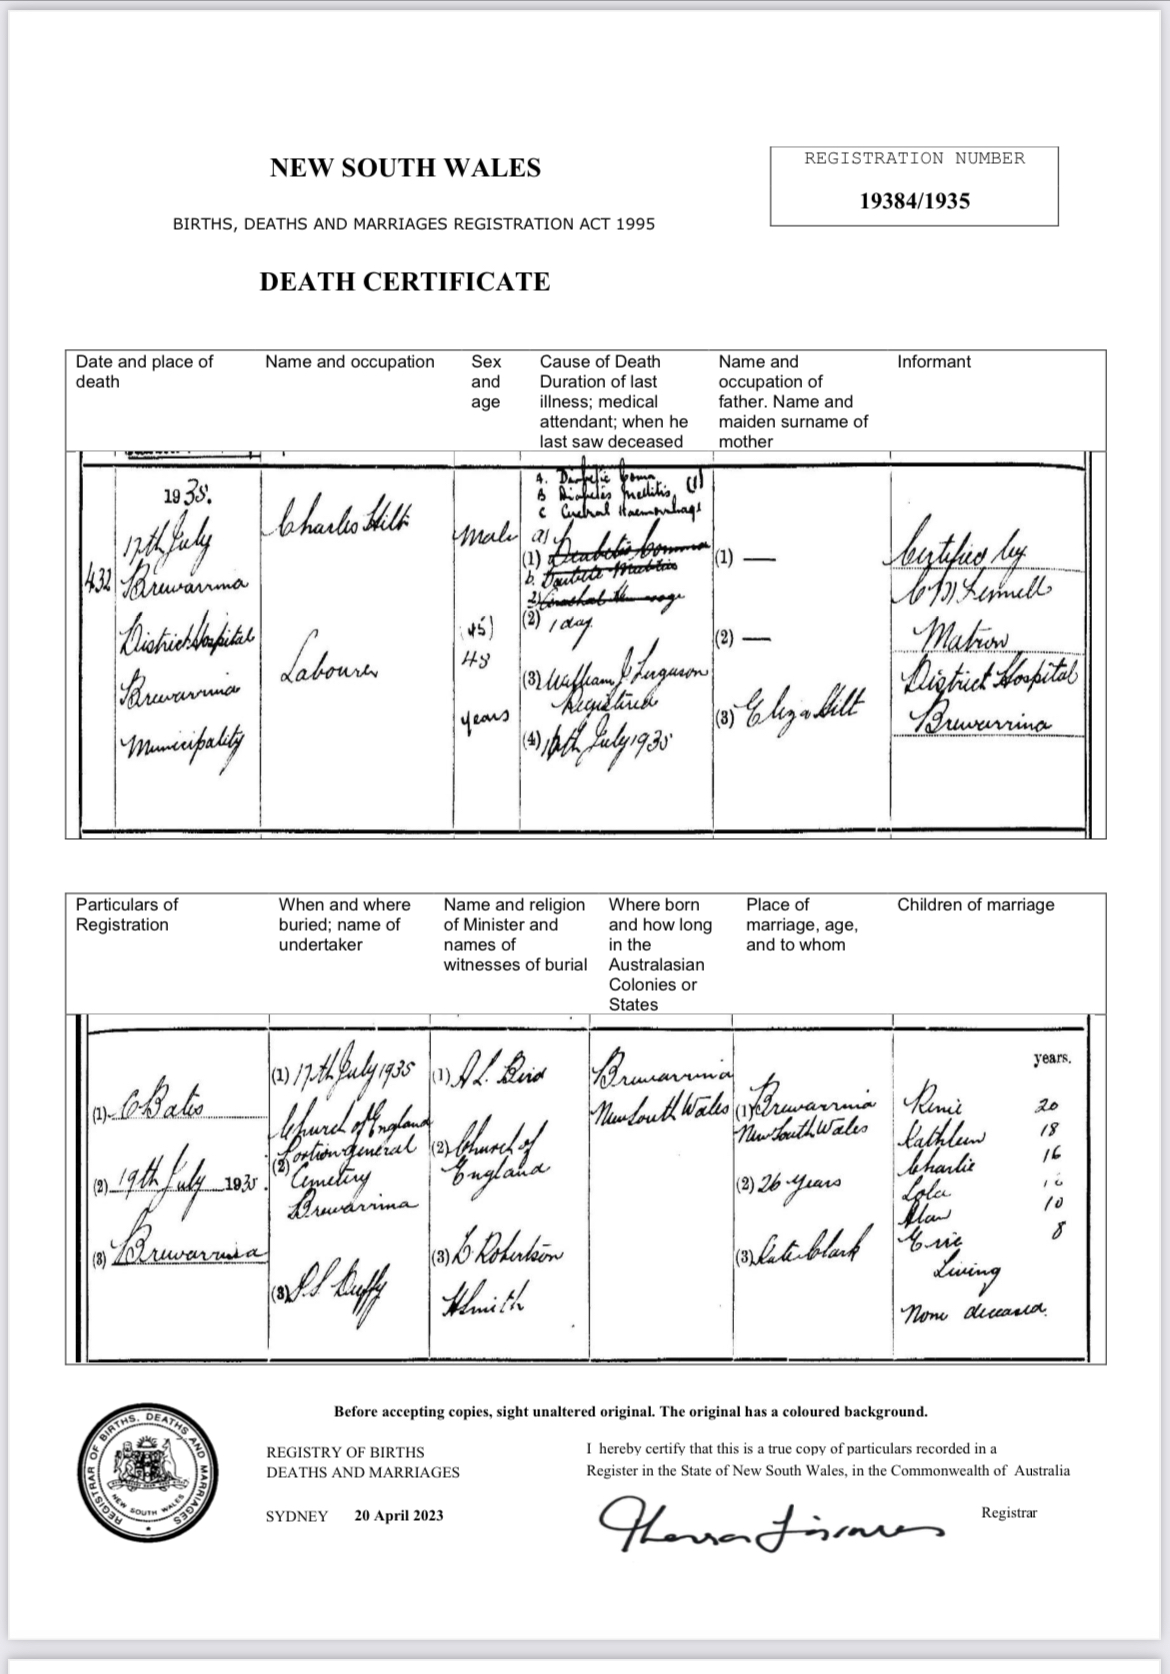 NEW SOUTH WALES
REGISTRATION NUMBER
19384/1935
BIRTHS, DEATHS AND MARRIAGES REGISTRATION ACT 1995
DEATH CERTIFICATE
Date and place of
death
Name and occupation
Sex
and
age
Cause of Death
Duration of last
illness; medical
attendant; when he
last saw deceased
Name and
occupation of
father. Name and
maiden surname of
mother
Informant
432
1935.
17th July
Brewarrina
District Hospital
Brewarrina
Municipality
Charles Hilt
Labourer
Male
(45)
48
years
A. Diabetic Coma (1)
B Diabetes Mellitis
C Cerebral Haemorrhage
a)
(1)
b.
2)
(2) 1 day
(3) William J Ferguson
Registered
(4) 16th July 1935
(1) —
(2) —
(3) Eliza Hilt
Certified by
Matron
District Hospital
Brewarrina
Particulars of
Registration
When and where
buried; name of
undertaker
Name and religion
of Minister and
names of
witnesses of burial
Where born
and how long
in the
Australasian
Colonies or
States
Place of
marriage, age,
and to whom
Children of marriage
(1) C Bates
(2) 19th July 1935.
(3) Brewarrina
(1) 17th July 1935
Church of England
Portion general
(2) Cemetery
Brewarrina
(3) P.S. Duffy
(1) A L. Bird
(2) Church of
England
(3) D. Robertson
H Smith
Brewarrina
New South Wales
(1) Brewarrina
New South Wales
(2) 26 years
(3) Kate Clark
years.
Renie 20
Kathleen 18
Charlie 16
Lola
Alan 10
Eric 8
Living
None deceased.
REGISTRAR OF BIRTHS, DEATHS AND MARRIAGES
NEW SOUTH WALES
Before accepting copies, sight unaltered original. The original has a coloured background.
REGISTRY OF BIRTHS
DEATHS AND MARRIAGES
SYDNEY 20 April 2023
I hereby certify that this is a true copy of particulars recorded in a
Register in the State of New South Wales, in the Commonwealth of Australia
Registrar